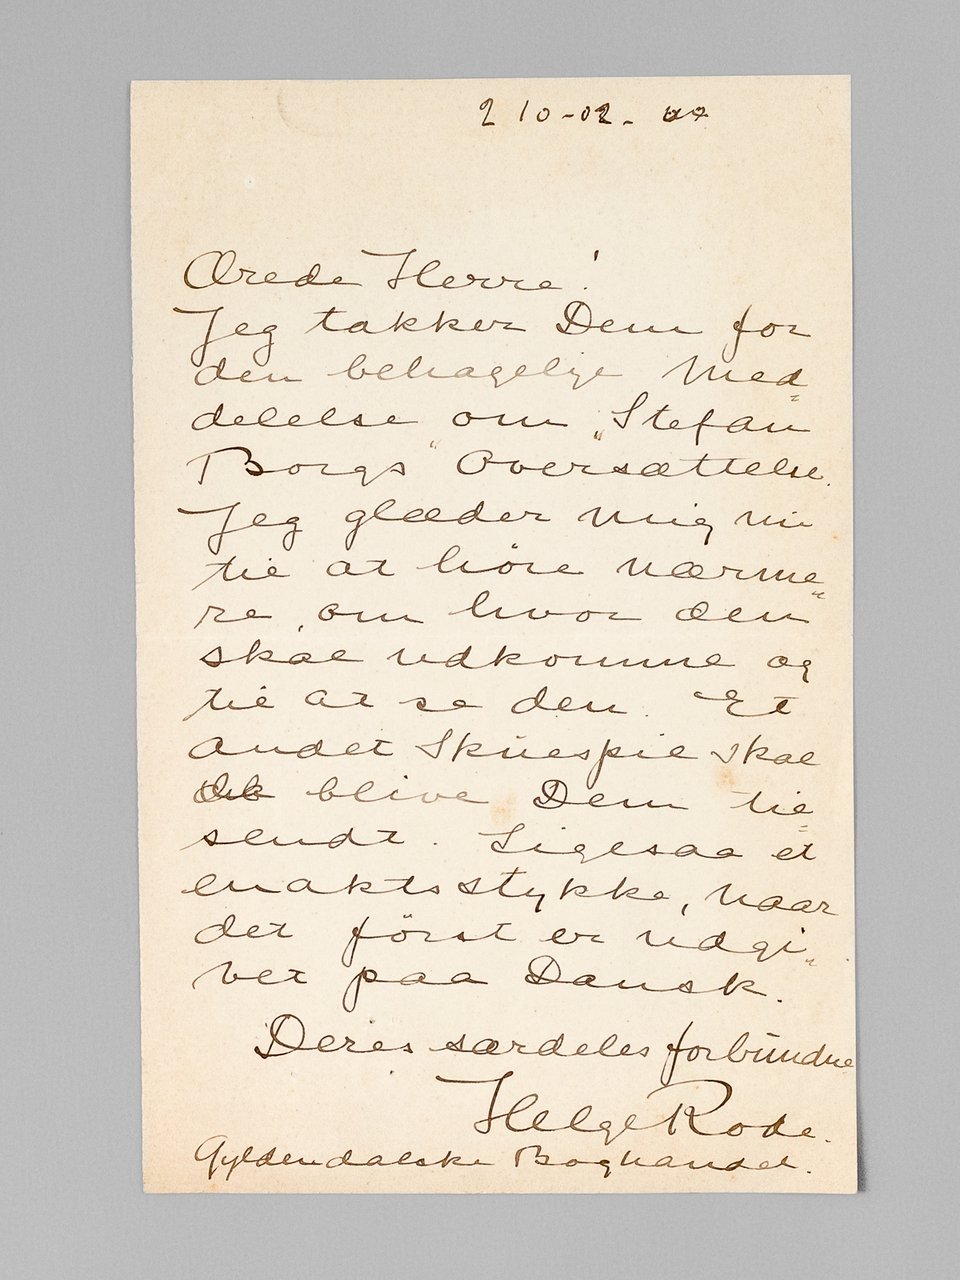 2 10-02.
Ærede Herre!
Jeg takker Dem for
den behagelige Med=
delelse om „Stefan
Borgs" Oversættelse.
Jeg glæder mig nu
til at høre nærme=
re, om hvor den
skal udkomme og
til at se den. Et
andet Skuespil skal
blive Dem til=
sendt. Ligesaa et
enaktsstykke, naar
det först er udgi=
vet paa Dansk.
Deres særdeles forbundne
Helge Rode.
Gyldendalske Boghandel.